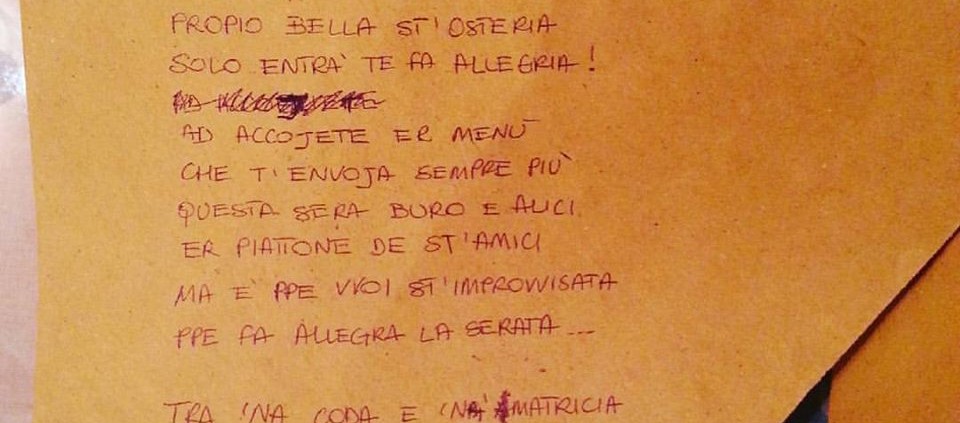 PROPIO BELLA ST'OSTERIA
SOLO ENTRA' TE FA ALLEGRIA!
AD ACCOJETE ER MENÙ
CHE T'ENVOJA SEMPRE PIÙ
QUESTA SERA BURO E ALICI
ER PIATTONE DE ST'AMICI
MA E' PPE VVOI ST'IMPROVVISATA
PPE FA ALLEGRA LA SERATA...
TRA 'NA CODA E 'NA MATRICIA